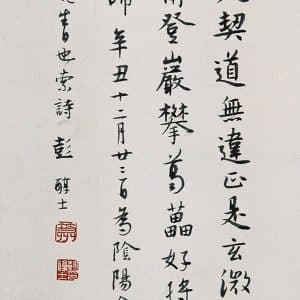 契道無違正是玄微
登巖攀葛藟好
辛丑十二月廿三日為陰陽
也索詩 彭醇士